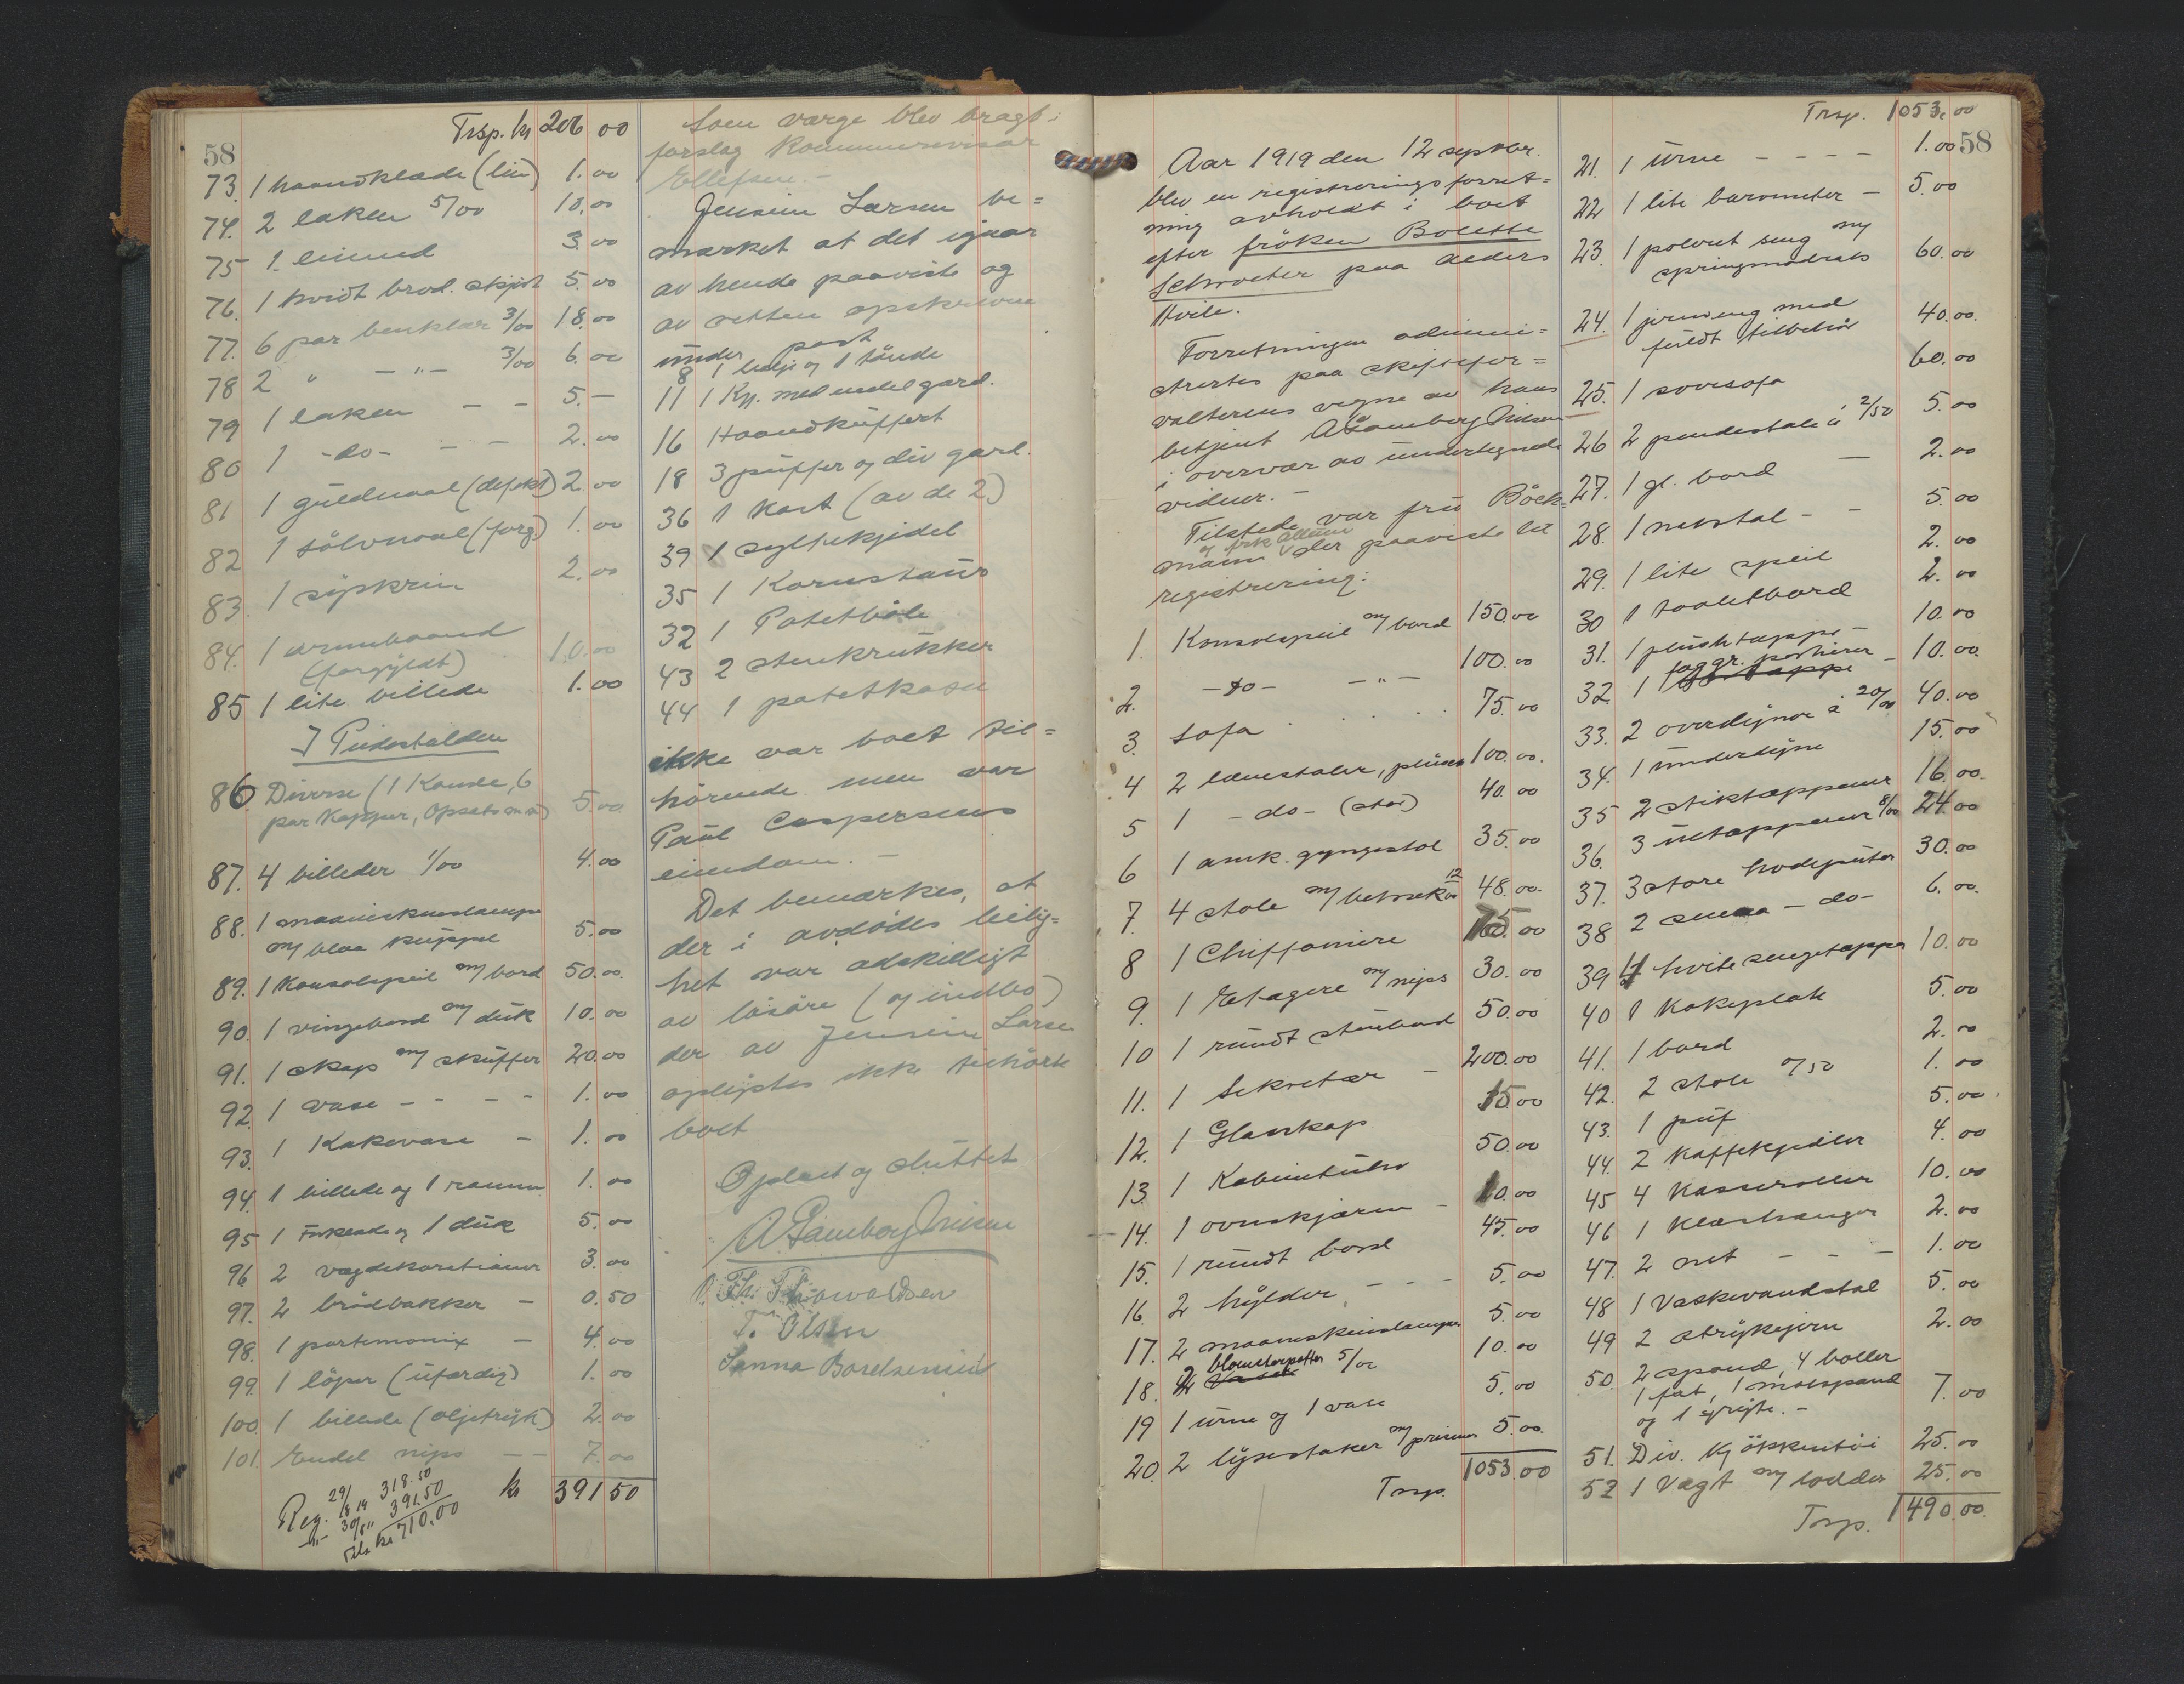 58
Trsp. kr 206 00
73. 1 haandklæde (lin) 1.00
74. 2 laken 5/00 10.00
75 1. linned 3.00
76. 1 hvidt brod. skjört 5.00
77. 6 par benklær 3/00 18.00
78 2 " - " - 3/00 6.00
79 1 laken - - 5.-
80 1 -do- - - 2.00
81 1 guldnaal (defekt) 2.00
82 1 sölvnaal (forg) 1.00
83. 1 syskrin 2.00
84. 1 armbaand
(forgyldt) 10.00
85 1 lite billede 1.00
I Pidestalden
86 Diverse (1 Kande, 6
par Kopper, Opsats m.m) 5.00
87. 4 billeder 1/00 4.00
88. 1 maaneskinslampe
m/ blaa kuppel 5.00
89. 1 Konsolspeil m/ bord 50.00
90. 1 vingebord m/ duk 10.00
91. 1 skap m/ skuffer 20.00
92. 1 vase - - - - 1.00
93. 1 Kakevase - 1.00
94. 1 billede og 1 ramme 1.00
95 1 og 1 duk 5.00
96 2 vægdekorationer 3.00
97. 2 brödbakker - 0.50
98. 1 portemonix - 4.00
99. 1 löper (ufærdig) 1.00
100. 1 billede (oljetryk) 2.00
101. Endel nips - - 7.00
kr 391 50
Reg. 29/8 19 318.50
-"- 30/8 " 391.50
Tils kr 710.00
Som værge blev bragt i
forslag Kommunerevisor
Ellefsen.-
Jensine Larsen be=
mærket at det igaar
av hende paaviste og
av retten opskrevne
under post
8 1 balje og 1 tönde
11 1 Kff. med endel gard.
16 Haandkuffert
18 3 puffer og div gard.
36 1 Kost (av de 2)
39 1 syltekjedel
35 1 Kornstaur
32 1 Potetböle
43 2 stenkrukker
44 1 potetkasse
ikke var boet til=
hörende men var
Paul Caspersens
eiendom.-
Det bemærkes, at
der i avdödes leilig=
het var adskilligt
av lösöre (og indbo)
der av Jensine Larsen
oplystes ikke tilhörte
boet
Oplæst og sluttet
A. Lamberg Nilsen
Th. Thorvaldsen
T. Olsen
Sanna Boroldsen
58
Aar 1919 den 12 septbr.
blev en registreringsforret=
ning avholdt i boet
efter fröken Bolette
Schroeter paa Alders
Hvile.
Forretningen admini=
strertes paa skiftefor=
valterens vegne av hans
betjent A Lamberg Nilsen
i overvær av undertegnede
vidner.-
Tilstede var fru Böck=
mann og frk der paaviste til
registrering:
1. Konsolspeil m/ bord 150.00
2. -do- -"- 100.00
3. Sofa . . . . 75.00
4 2 lænestoler, plüsch 100.00.
5 1 -do- (stor) 40.00
6 1 amk. gyngestol 35.00
7. 4 stole m/ betræk 12/00 48.00.
8 1 Chiffoniere 75.00
9. 1 Etagere m/ nips 30.00
10 1 rundt stuebord 50.00
11. 1 Sekretær - 200.00
12. 1 Glasskap 15.00
13. 1 Kabinetuhr 50.00
14. 1 ovnskjærm - 10.00
15. 1 rundt bord 45.00
16. 2 hylder - - - 5.00
17. 2 maaneskinslamper 5.00
18. 2 blomsterpotter 5/00 10.00
19 1 urne og 1 vase 5.00
20. 2 lysestaker m/ prismer 5.00.
Trsp. 1053.00
Trsp. 1053.00
21. 1 urne - - - - 1.00
22 1 lite barometer - 5.00
23. 1 poleret seng m/
springmadrass 60.00
24. 1 jernseng med
fuldt tilbehör 40.00.
25. 1 sovesofa 60.00
26 2 pendestale à 2/50 5.00
27. 1 gl. bord - 2.00
28. 1 - - 5.00
29. 1 lite speil 2.00
30 1 toiletbord 2.00
31. 1 plüshteppe - 10.00
32. 1 fag gr. portierer - 10.00.
33. 2 overdyner à 20/00 40.00
34. 1 underdyne 15.00
35 2 stiktæpper 16.00.
36. 3 uldtæpper 8/00 24.00
37. 3 store hodeputer 30.00
38 2 smaa -do- 6.00.
39 4 hvite sengetæpper 10.00
40 1 Kokeplate 5.00
41. 1 bord 2.00
42. 2 stole 0/50 1.00
43. 1 puf 5.00
44. 2 kaffekjedler 4.00
45 4 Kasseroller 10.00
46 1 Klæshenger 2.00
47. 2 net - - - 1.00
48 1 Vaskevandstol 5.00
49 2 strykejern 2.00
50. 2 spand, 4 boller
1 fat, 1 matspand
og 1 gryte.- 7.00
51. Div. kjökkentöi 25.00
52 1 Vægt m/ lodder 25.00
Trsp. 1490.00